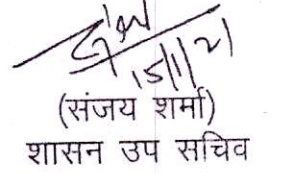 15/1/21
(संजय शर्मा)
शासन उप सचिव